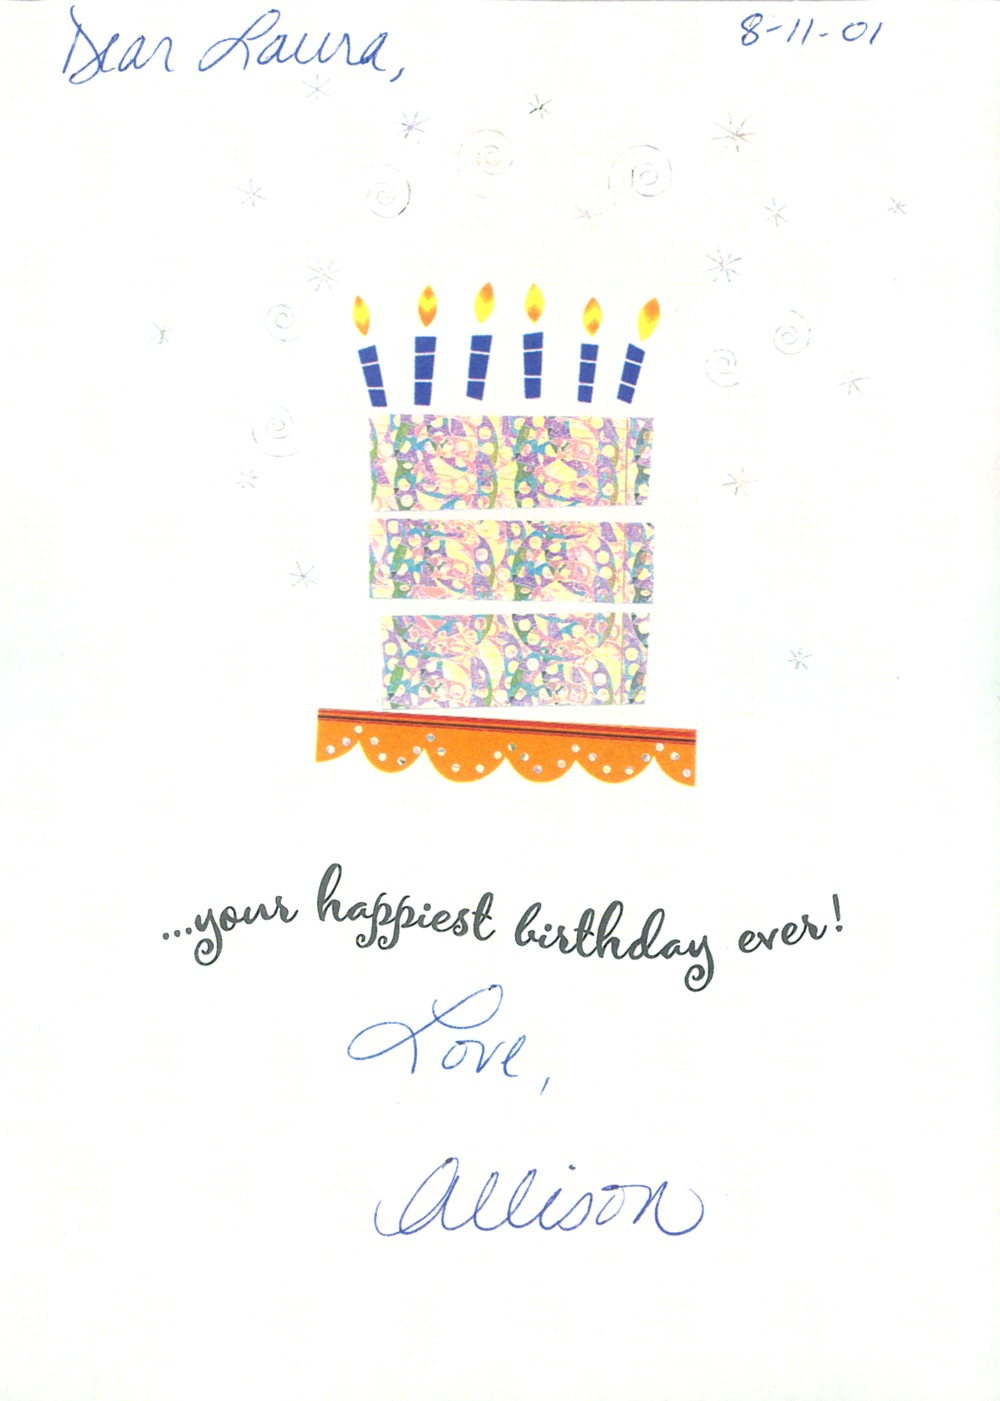 Dear Laura,
8-11-01
...your happiest birthday ever!
Love,
Allison